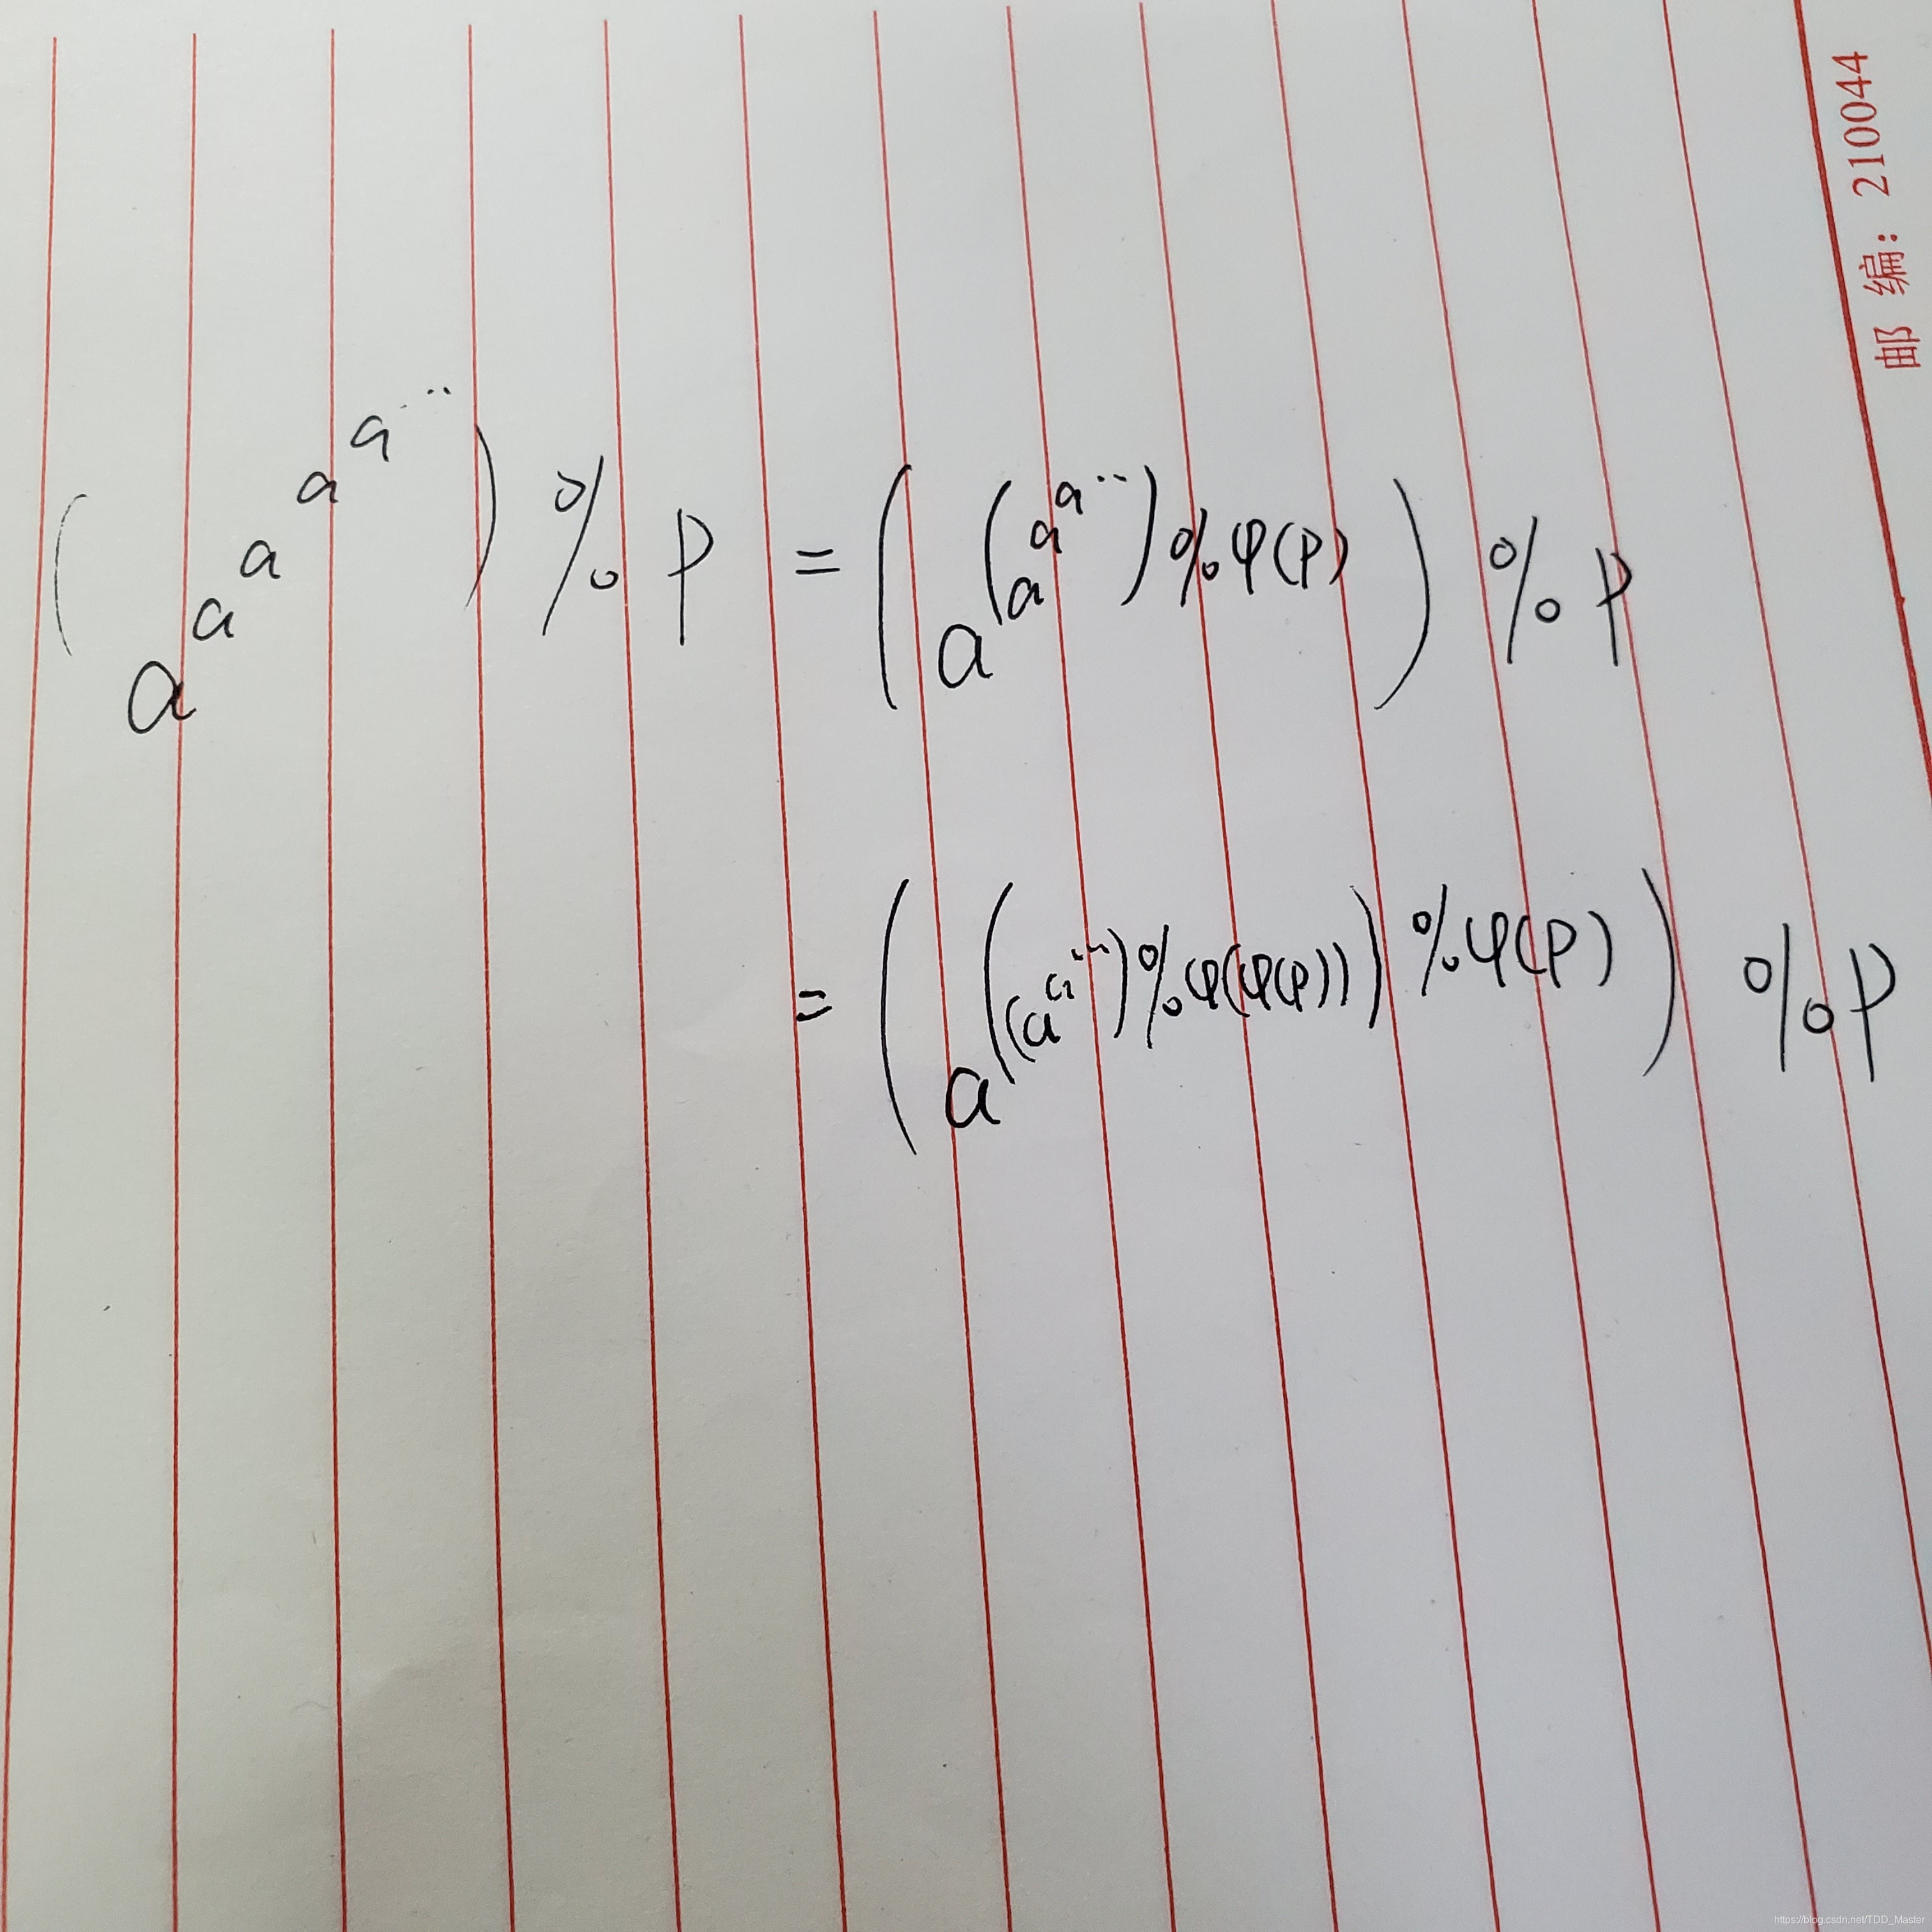 邮 编: 210044
(a^{a^{a^{a^{a^{...}}}}}) % p = (a^{(a^{a^{a^{...}}}) % φ(p)}) % p
= (a^{((a^{a^{...}}) % φ(φ(p))) % φ(p)}) % p
https://blog.csdn.net/TDD_Master